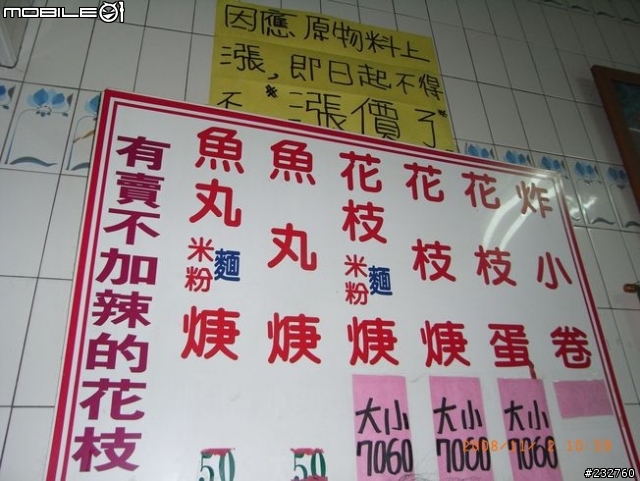 MOBILE01
因應原物料上
漲,即日起不得
不"漲價了"
有賣不加辣的花枝
魚丸米粉麵焿
50
魚丸焿
50
花枝米粉麵焿
大小
7060
花枝焿
大小
7060
花枝蛋
大小
7060
炸小卷
2008/11/ 2 10:
#232760